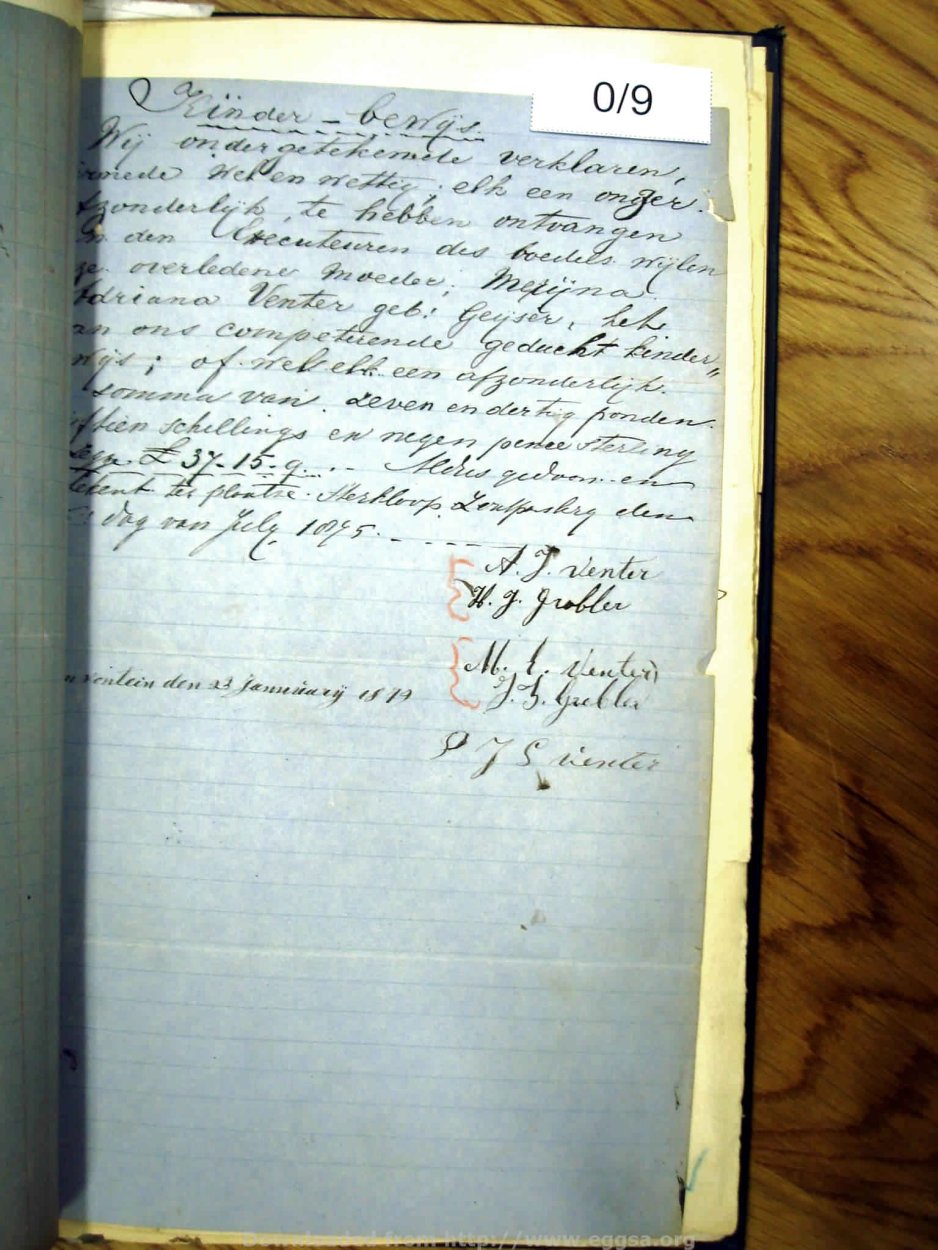 0/9
Kinder-bewijs.
Wij ondergetekende verklaren,
mede wel en wettig, elk een onzer
zonderlijk, te hebben ontvangen
den Executeuren des boedels wijlen
ze overledene moeder; Mexijna
Adriana Venter geb: Geijser, het
an ons competeerende gedacht kinder„
wijs; of wel elk een afzonderlijk
somma van zeven en dertig ponden
ftien schillings en negen pence sterling
£ 37-15-9 Aldus gedaan en
tekent ter plaatse Sterkloop Zoutpansberg den
dag van July 1875
A. J. Venter
H. J. Grobler
M. Venter
J. Grobler
ontein den 23 Januarij 1879
P J S Venter
Downloaded from http://www.eggsa.org